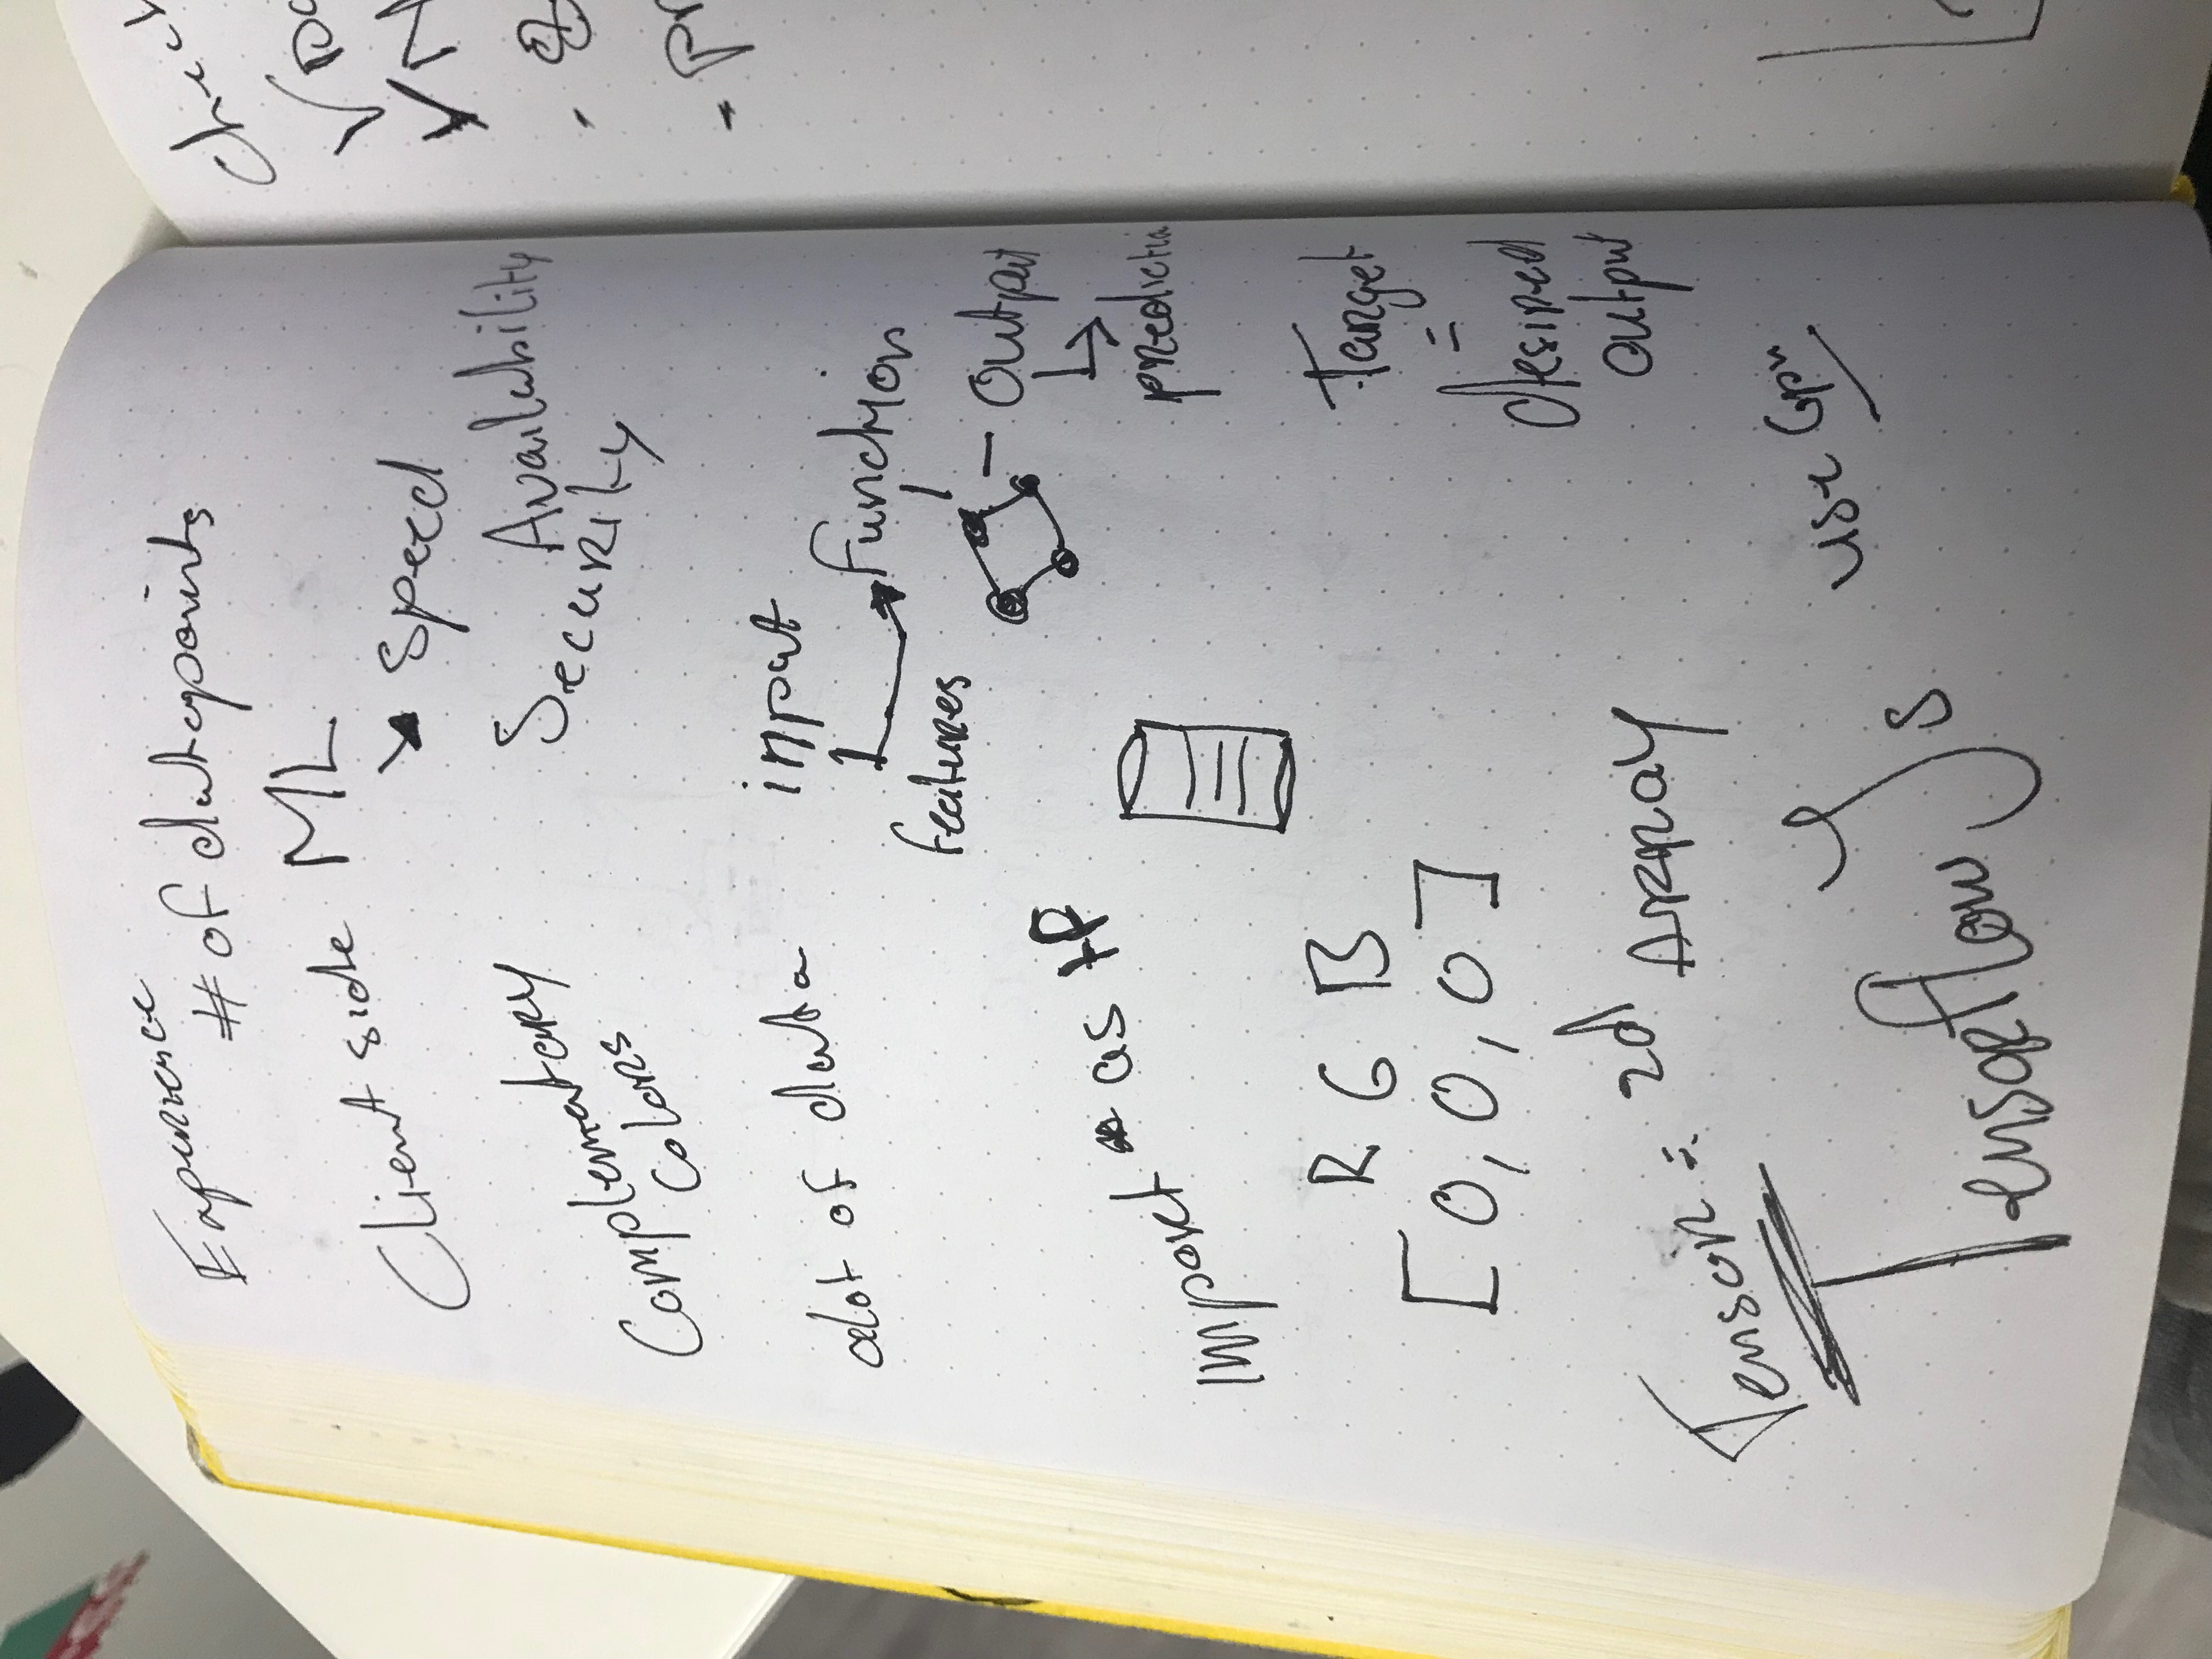 Experience
# of datapoints
Client side ML
Speed
Availability
Security
Complematary
Colors
alot of data
input
Function
features
Output
predictio
Import * as tf
R G B
[0, 0, 0]
Target
=
desired
output
Tensor = 2d ARRAY
use Gpu
Tensorflow Js
check
- pr